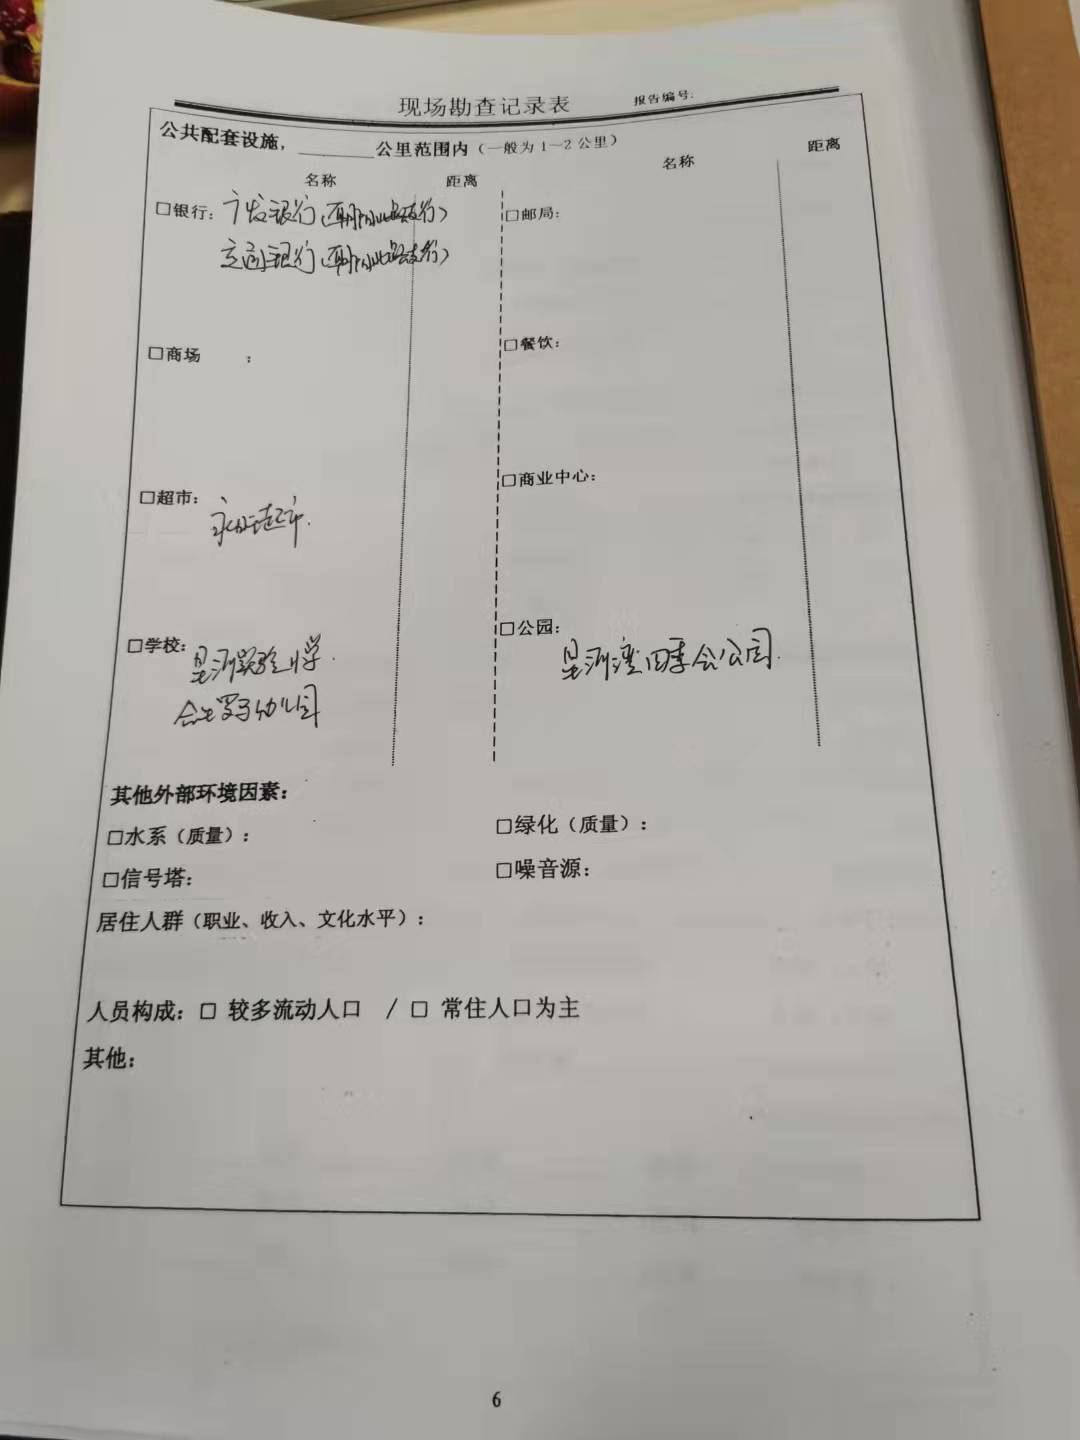 现场勘查记录表
报告编号:
公共配套设施，_______公里范围内（一般为 1～2 公里）
名称 距离 名称 距离
□银行：广发银行（支行）
交通银行（支行）
□邮局：
□商场 ：
□餐饮：
□超市：
超市.
□商业中心：
□学校：星河实验小学.
幼儿园
□公园：
星河湾四季会公园.
其他外部环境因素：
□水系（质量）：
□绿化（质量）：
□信号塔：
□噪音源：
居住人群（职业、收入、文化水平）：
人员构成：□ 较多流动人口 / □ 常住人口为主
其他：
6